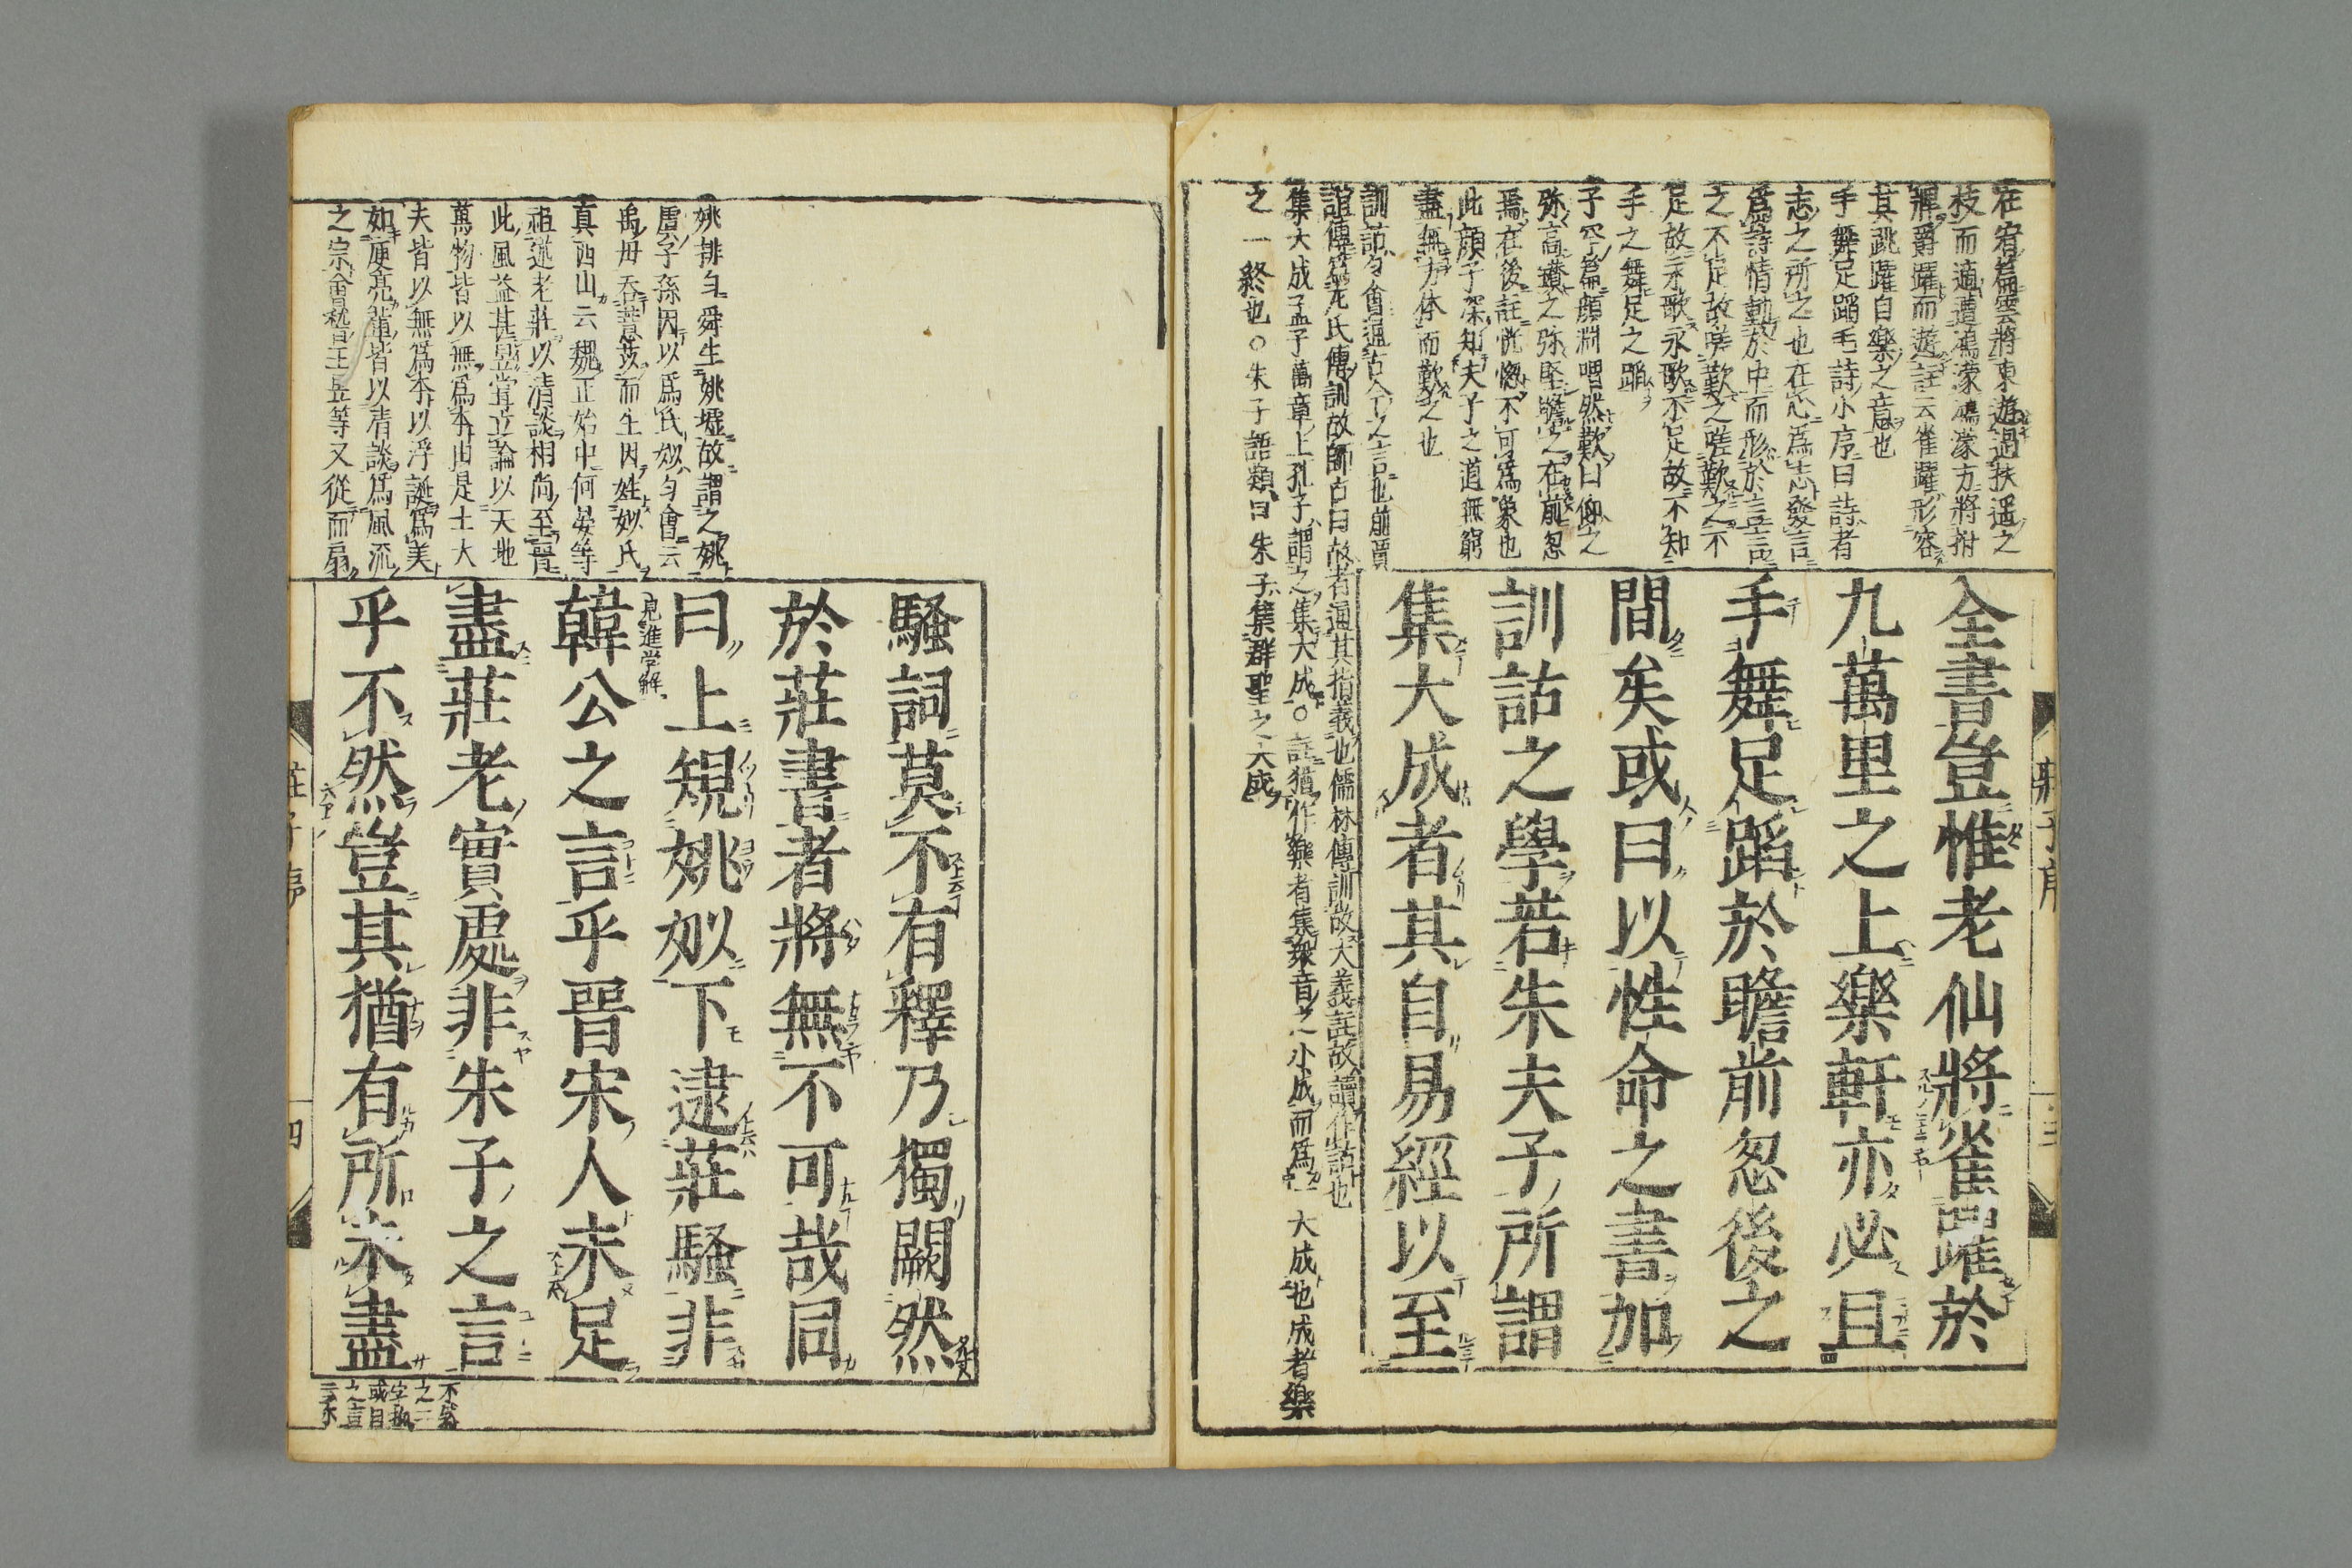 在宥篇雲將東遊過扶遥之
枝而適遭鴻濛鴻濛方將拊
脾爵躍而遊註云雀躍形容
其跳躍自樂之意也
手舞足蹈毛詩小序曰詩者
志之所之也在心爲志發言
爲詩情動於中而形於言言
之不足故嗟歎之嗟歎之不
足故永歌永歌不足故不知
手之舞足之蹈
子罕篇顔淵喟然歎曰仰之
弥高鑽之弥堅瞻之在前忽
焉在後註恍惚不可爲象也
此顔子深知夫子之道無窮
盡無方体而歎之也
全書豈惟老仙將雀躍於
九萬里之上樂軒亦必且
手舞足蹈於瞻前忽後之
間矣或曰以性命之書加
訓詁之學若朱夫子所謂
集大成者其自易經以至
訓詁匀會通古今之言也前賈
誼傳爲左氏傳訓故師古曰故者通其指義也儒林傳訓故大義註故讀作詁也
集大成孟子萬章上孔子謂之集大成○註猶作樂者集衆音之小成而爲一大成也成者樂
之一終也○朱子語類曰朱子集群聖之大成
莊子序
三
姚排匀舜生姚墟故謂之姚
虞子孫因以爲氏姒匀會云
禹母吞薏苡而生因姓姒氏
真西山云魏正始中何晏等
祖述老莊以清談相尚至晋
此風益甚晏嘗立論以天地
萬物皆以無爲本由是士大
夫皆以無爲本以浮誕爲美
如庾亮輩皆以清談爲風流
之宗會稽王昱等又從而扇
騷詞莫不有釋乃獨闕然
於莊書者將無不可哉同
曰上規姚姒下逮莊騷非
見進学解
韓公之言乎晋宋人未足
盡莊老實處非朱子之言
乎不然豈其猶有所未盡
不然
之二
字抛
或曰
之言
莊子序
四